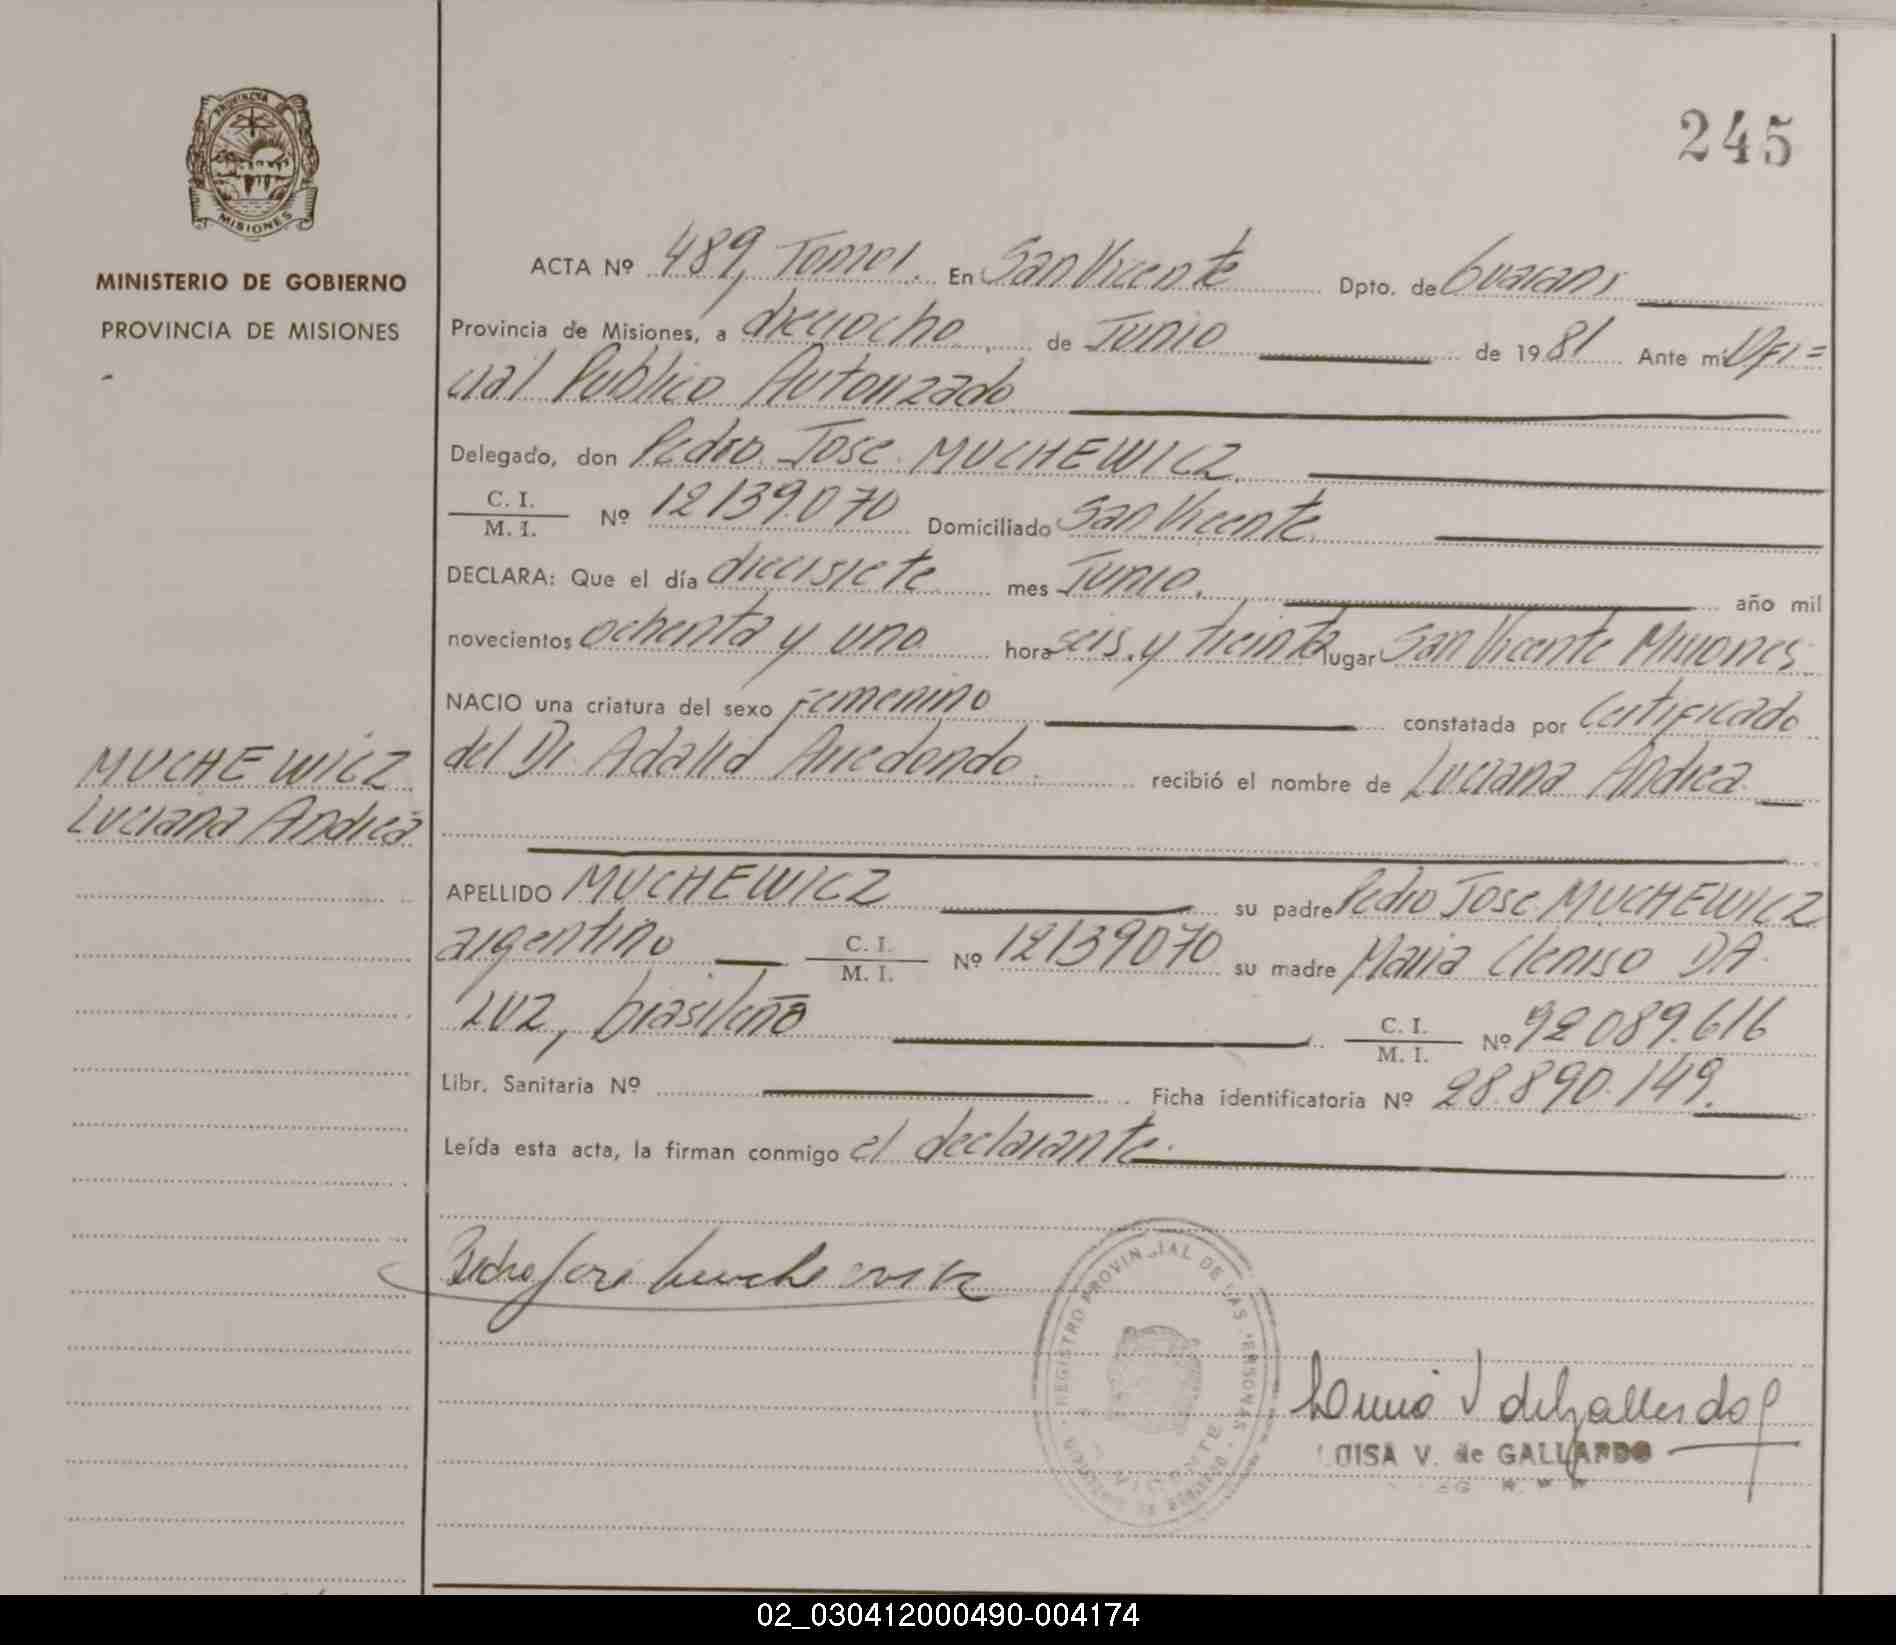 PROVINCIA DE
MISIONES
MINISTERIO DE GOBIERNO
PROVINCIA DE MISIONES
MUCHEWICZ
Luciana Andrea
245
ACTA Nº 489, Tomo I. En San Vicente Dpto. de Guarani
Provincia de Misiones, a dieciocho de Junio de 1981 Ante mi Ofi=
cial Publico Autorizado
Delegado, don Pedro Jose MUCHEWICZ
C. I.
M. I. Nº 12139.070 Domiciliado San Vicente
DECLARA: Que el día diecisiete mes Junio. año mil
novecientos ochenta y uno hora seis y treinta lugar San Vicente Misiones
NACIO una criatura del sexo Femenino constatada por Certificado
del Dr. Adalid Arredondo. recibió el nombre de Luciana Andrea
APELLIDO MUCHEWICZ su padre Pedro Jose MUCHEWICZ
argentino C. I.
M. I. Nº 12139070 su madre Maria Cleniso DA
LUZ, brasileña C. I.
M. I. Nº 92089.616
Libr. Sanitaria Nº Ficha identificatoria Nº 28.890.149.
Leída esta acta, la firman conmigo el declarante.
Pedro José Muchewicz
REGISTRO PROVINCIAL DE LAS PERSONAS
Luisa V de Gallardo
LUISA V. de GALLARDO
02_030412000490-004174